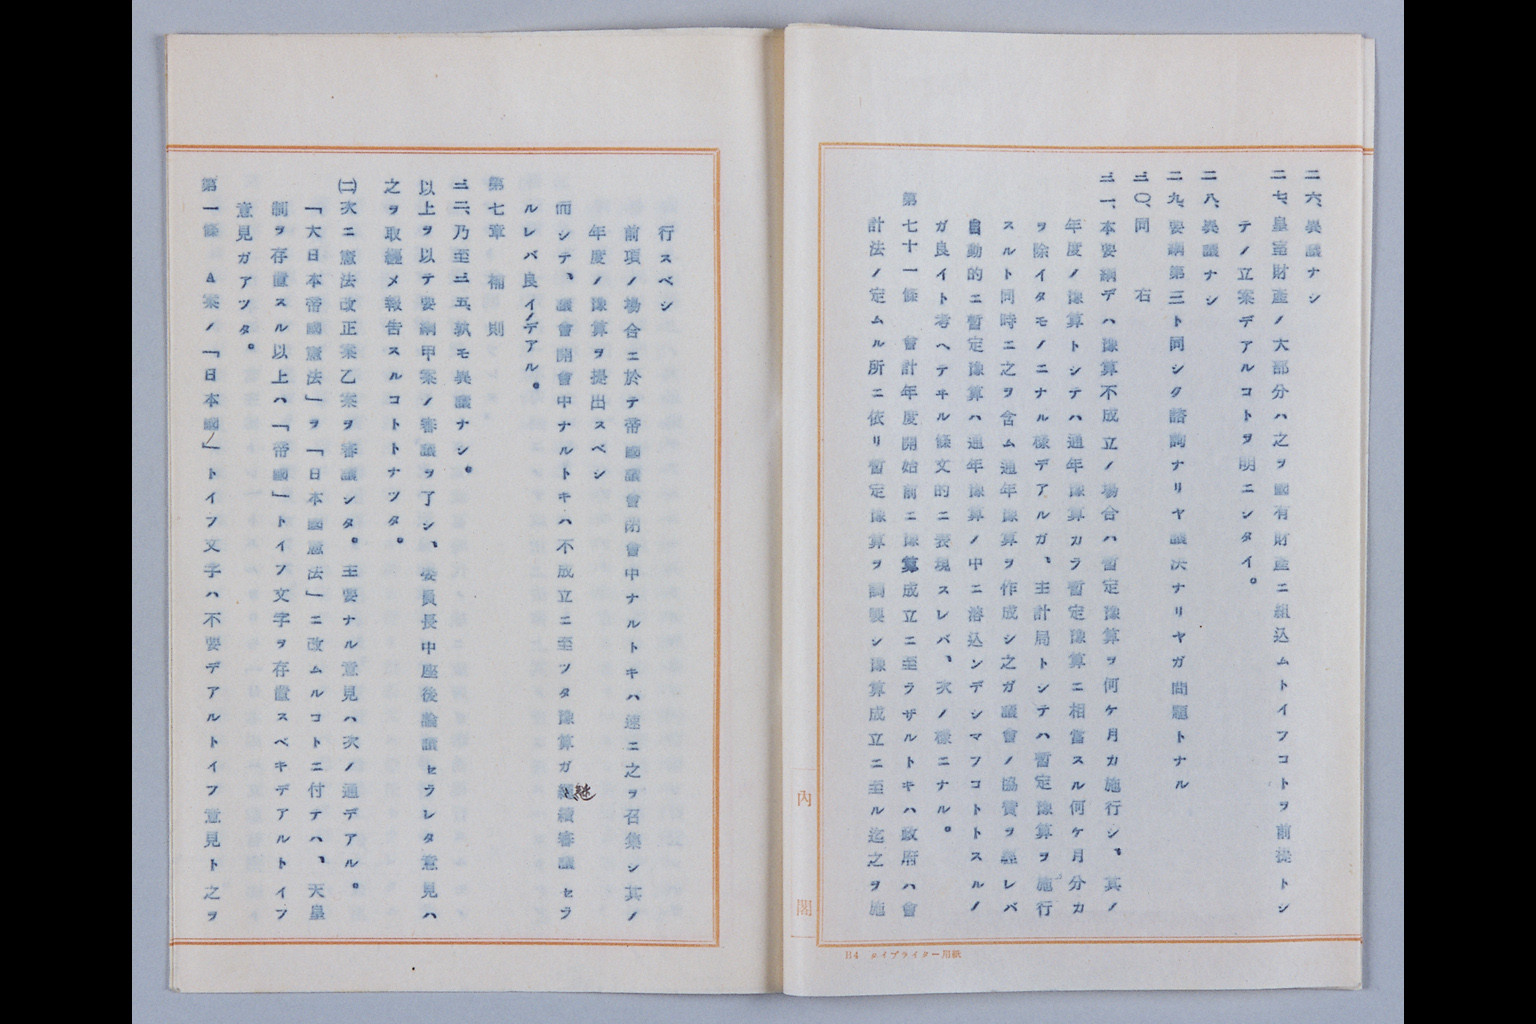 二六、異議ナシ
二七、皇室財産ノ大部分ハ之ヲ國有財産ニ組込ムトイフコトヲ前提トシ
テノ立案デアルコトヲ明ニシタイ。
二八、異議ナシ
二九、要綱第三ト同シク諮詢ナリヤ議決ナリヤガ問題トナル
三〇、同右
三一、本要綱デハ豫算不成立ノ場合ハ暫定豫算ヲ何ケ月カ施行シ、其ノ
年度ノ豫算トシテハ通年豫算カラ暫定豫算ニ相當スル何ケ月分カ
ヲ除イタモノニナル樣デアルガ、主計局トシテハ暫定豫算ヲ施行
スルト同時ニ之ヲ含ム通年豫算ヲ作成シ之ガ議會ノ協賛ヲ經レバ
自動的ニ暫定豫算ハ通年豫算ノ中ニ溶込ンデシマフコトトスルノ
ガ良イト考ヘテヰル條文的ニ表現スレバ、次ノ樣ニナル。
第七十一條 會計年度開始前ニ豫算成立ニ至ラザルトキハ政府ハ會
計法ノ定ムル所ニ依リ暫定豫算ヲ調製シ豫算成立ニ至ル迄之ヲ施
行スベシ
前項ノ場合ニ於テ帝國議會閉會中ナルトキハ速ニ之ヲ召集シ其ノ
年度ノ豫算ヲ提出スベシ
而シテ、議會開會中ナルトキハ不成立ニ至ツタ豫算ガ繼續審議セラ
ルレバ良イノデアル。
第七章 補則
三二、乃至三五、孰モ異議ナシ。
以上ヲ以テ要綱甲案ノ審議ヲ了シ、委員長中座後論議セラレタ意見ハ
之ヲ取纏メ報告スルコトトナツタ。
㈡次ニ憲法改正案乙案ヲ審議シタ。主要ナル意見ハ次ノ通デアル。
「大日本帝國憲法」ヲ「日本國憲法」ニ改ムルコトニ付テハ、天皇
制ヲ存置スル以上ハ「帝國」トイフ文字ヲ存置スベキデアルトイフ
意見ガアツタ。
第一條 A案ノ「日本國」トイフ文字ハ不要デアルトイフ意見ト之ヲ
內閣
B4 タイプライター用紙